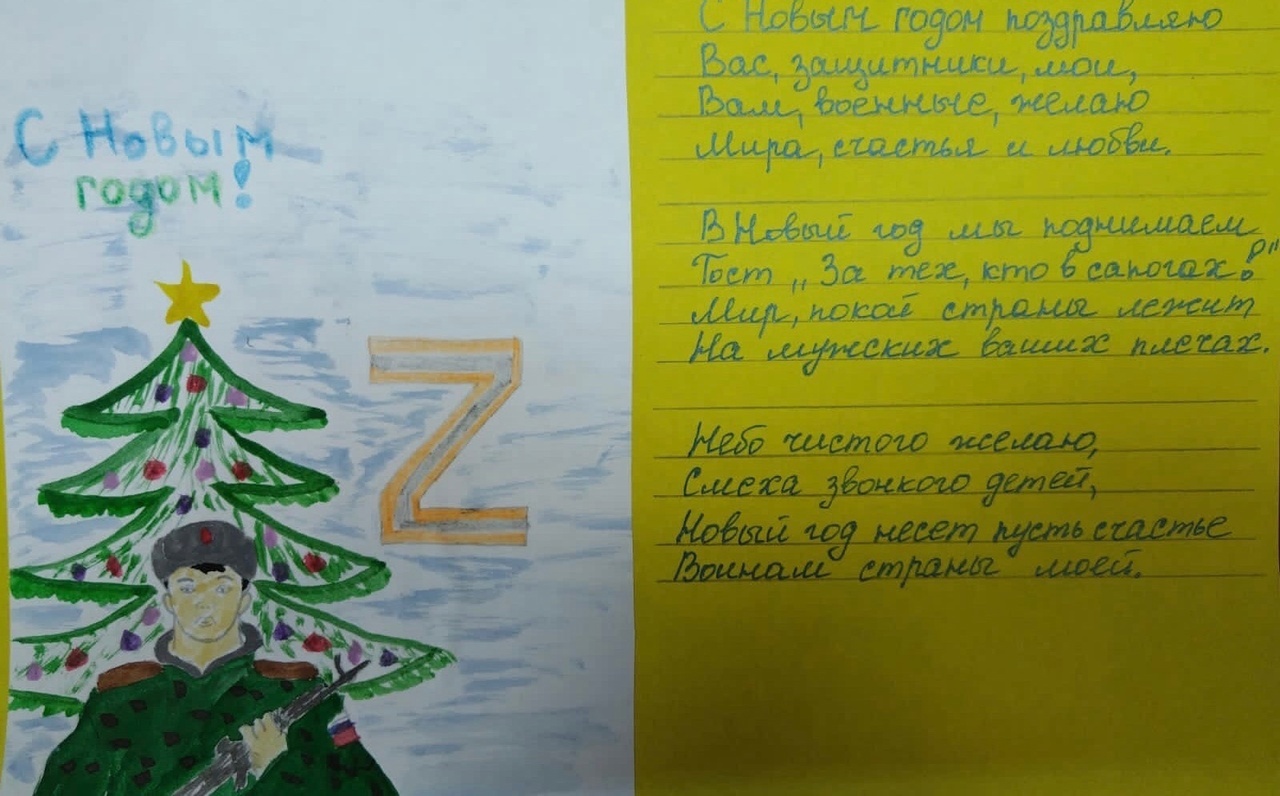 С Новым
годом!
Z
С Новым годом поздравляю
Вас, защитники, мои,
Вам, военные, желаю
Мира, счастья и любви.
В Новый год мы поднимаем
Тост „За тех, кто в сапогах!"
Мир, покой страны лежит
На мужских ваших плечах.
Небо чистого желаю,
Смеха звонкого детей,
Новый год несет пусть счастье
Воинам страны моей.